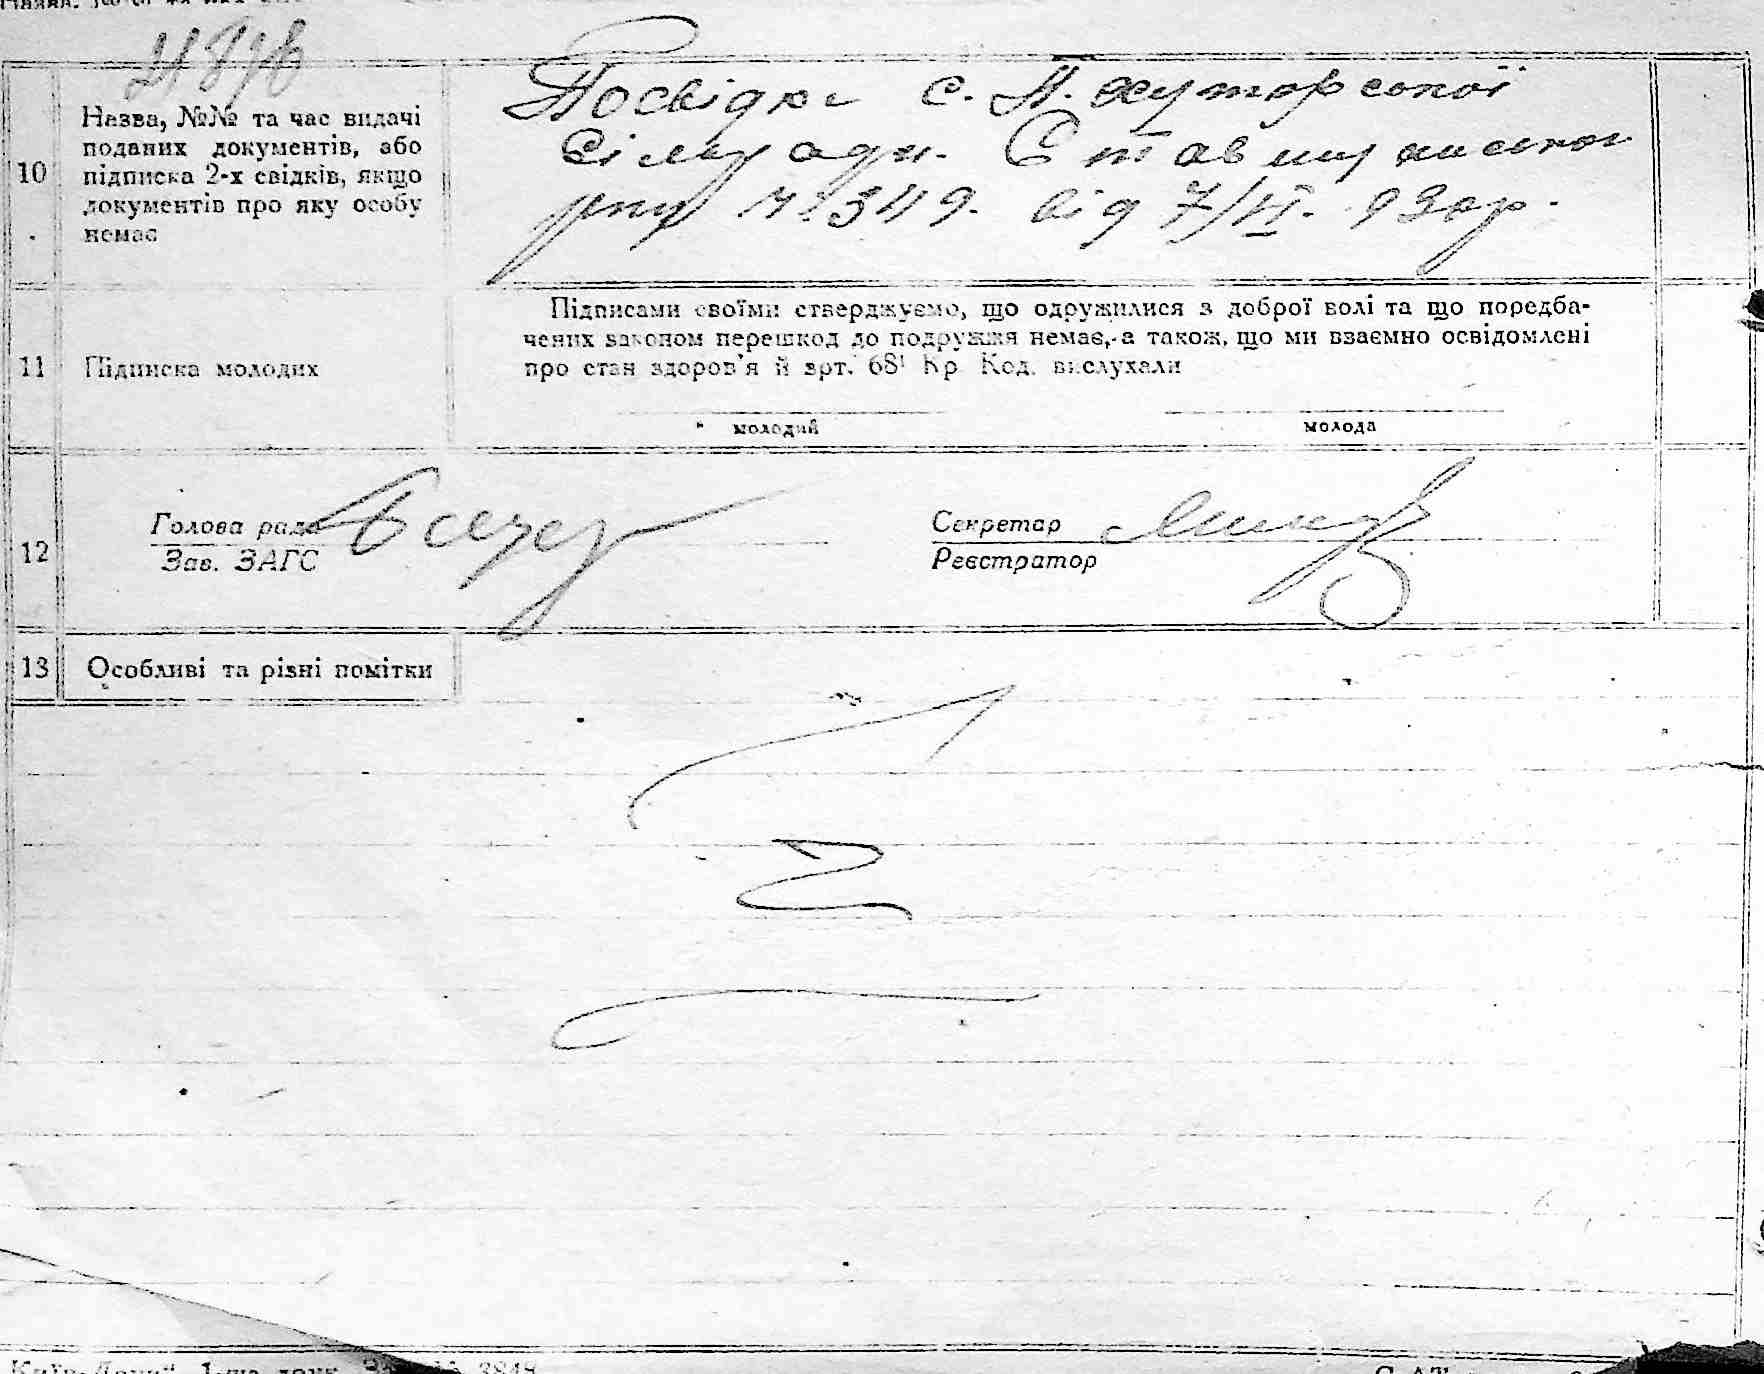 10
Назва, №№ та час видачі
поданих документів, або
підписка 2-х свідків, якщо
документів про яку особу
немає
Посвідка с. П. Хуторської
сільради. Ставищанськог
рну № 349. від 7/VI. 930р.
11
Підписка молодих
Підписами своїми стверджуємо, що одружилися з доброї волі та що поредба-
чених законом перешкод до подружжя немає, а також, що ми взаємно освідомлені
про стан здоров'я й арт. 68¹ Кр. Код. вислухали
молодий молода
12
Голова ради
Зав. ЗАГС
Секретар
Реєстратор
13
Особливі та різні помітки
3848